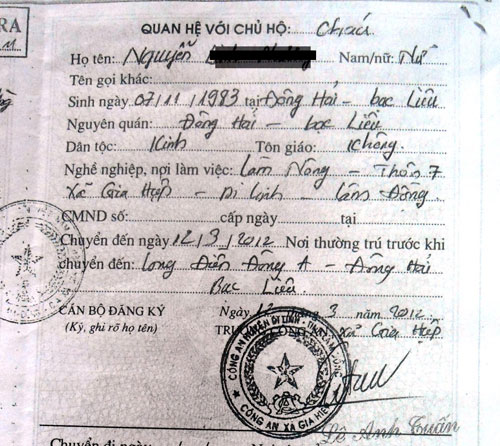 RA
QUAN HỆ VỚI CHỦ HỘ: Cháu
Họ tên: Nguyễn Nam/nữ: Nữ
Tên gọi khác:
Sinh ngày 07/11/1983 tại Đông Hải - bạc Liêu
Nguyên quán: Đông Hải - bạc Liêu
Dân tộc: Kinh Tôn giáo: Không
Nghề nghiệp, nơi làm việc: Làm Nông - Thôn 7
Xã Gia Hiệp - Di Linh - Lâm Đồng
CMND số: cấp ngày tại
Chuyển đến ngày 12/3/2012 Nơi thường trú trước khi
chuyển đến: Long Điền Đông A - Đông Hải
Bạc Liêu
CÁN BỘ ĐĂNG KÝ Ngày 12 tháng 3 năm 2012
(Ký, ghi rõ họ tên) xã Gia Hiệp
CÔNG AN HUYỆN DI LINH
CÔNG AN XÃ GIA HIỆP
Lê Anh Tuấn
Chuyển đi ngày